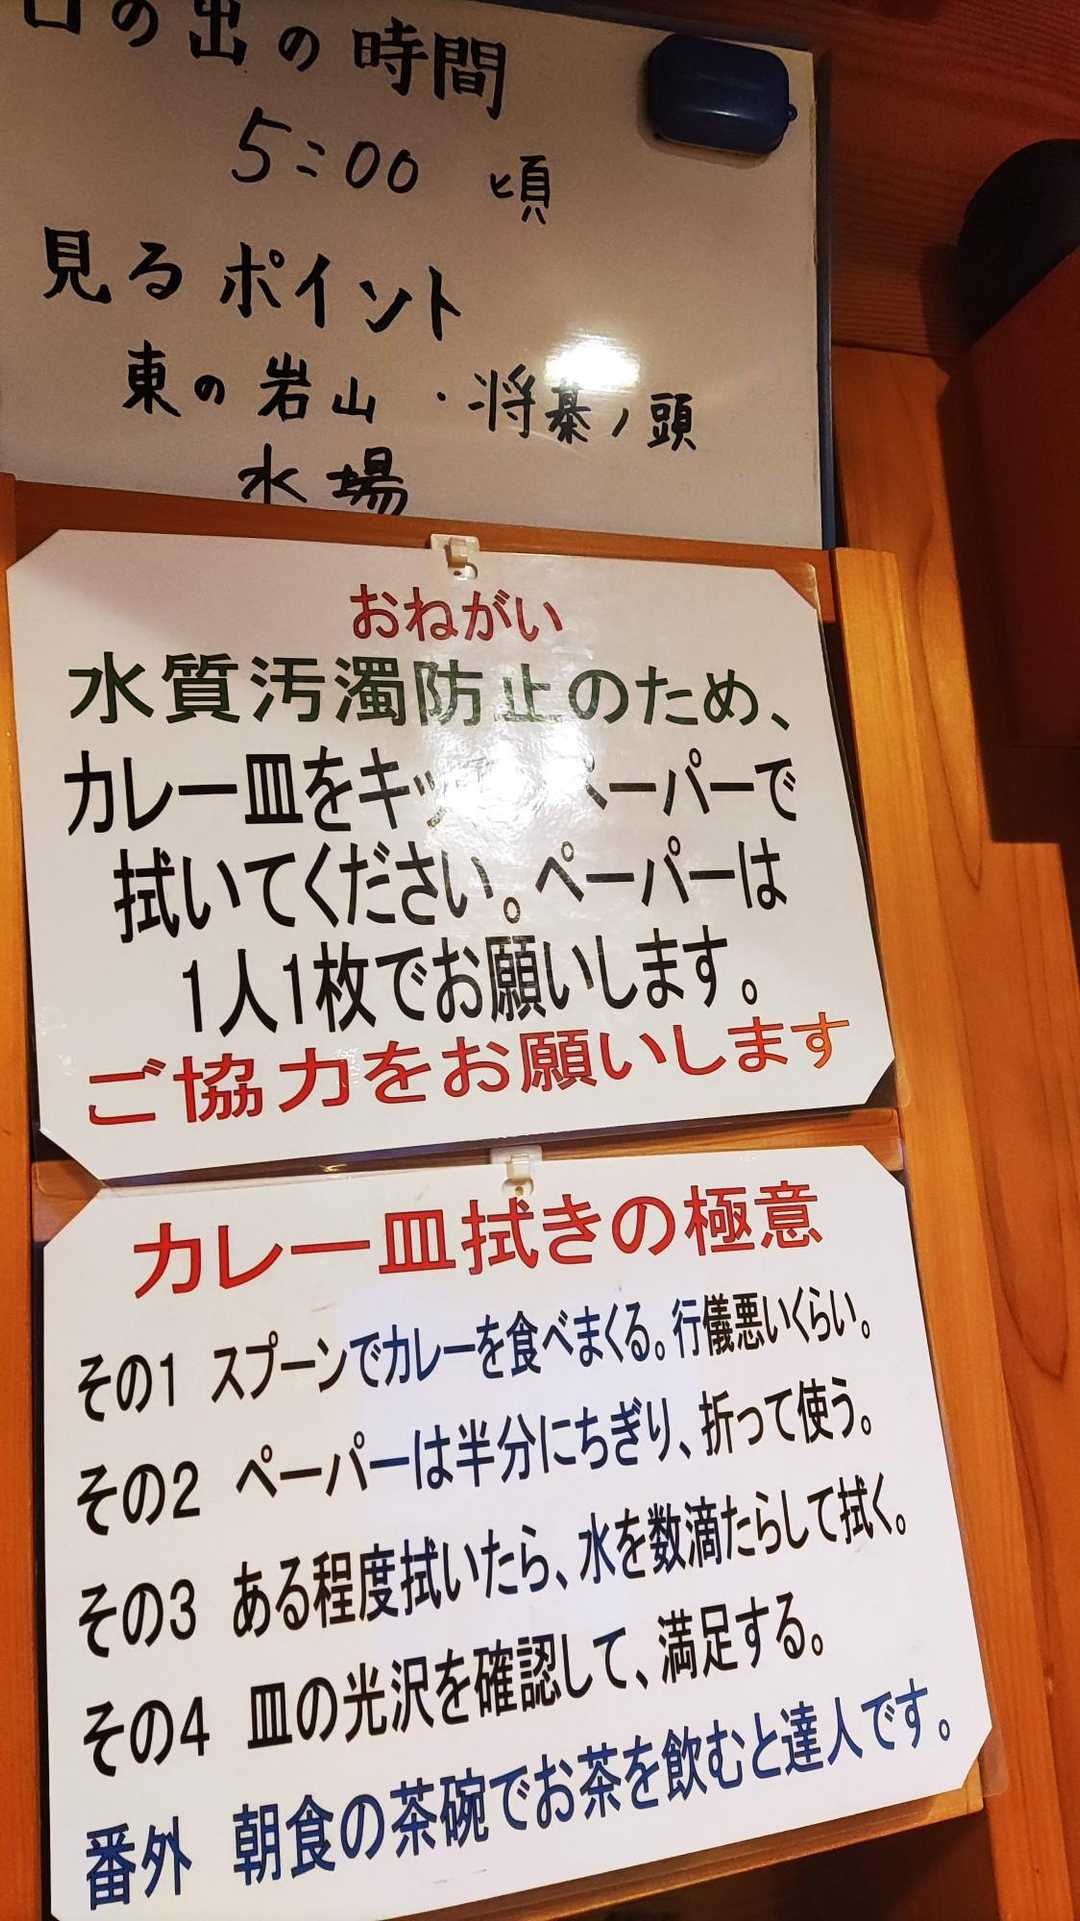 日の出の時間
5:00 頃
見るポイント
東の岩山・将棊ノ頭
水場
おねがい
水質汚濁防止のため、
カレー皿をキッ ペーパーで
拭いてください。ペーパーは
1人1枚でお願いします。
ご協力をお願いします
カレー皿拭きの極意
その1 スプーンでカレーを食べまくる。行儀悪いくらい。
その2 ペーパーは半分にちぎり、折って使う。
その3 ある程度拭いたら、水を数滴たらして拭く。
その4 皿の光沢を確認して、満足する。
番外 朝食の茶碗でお茶を飲むと達人です。